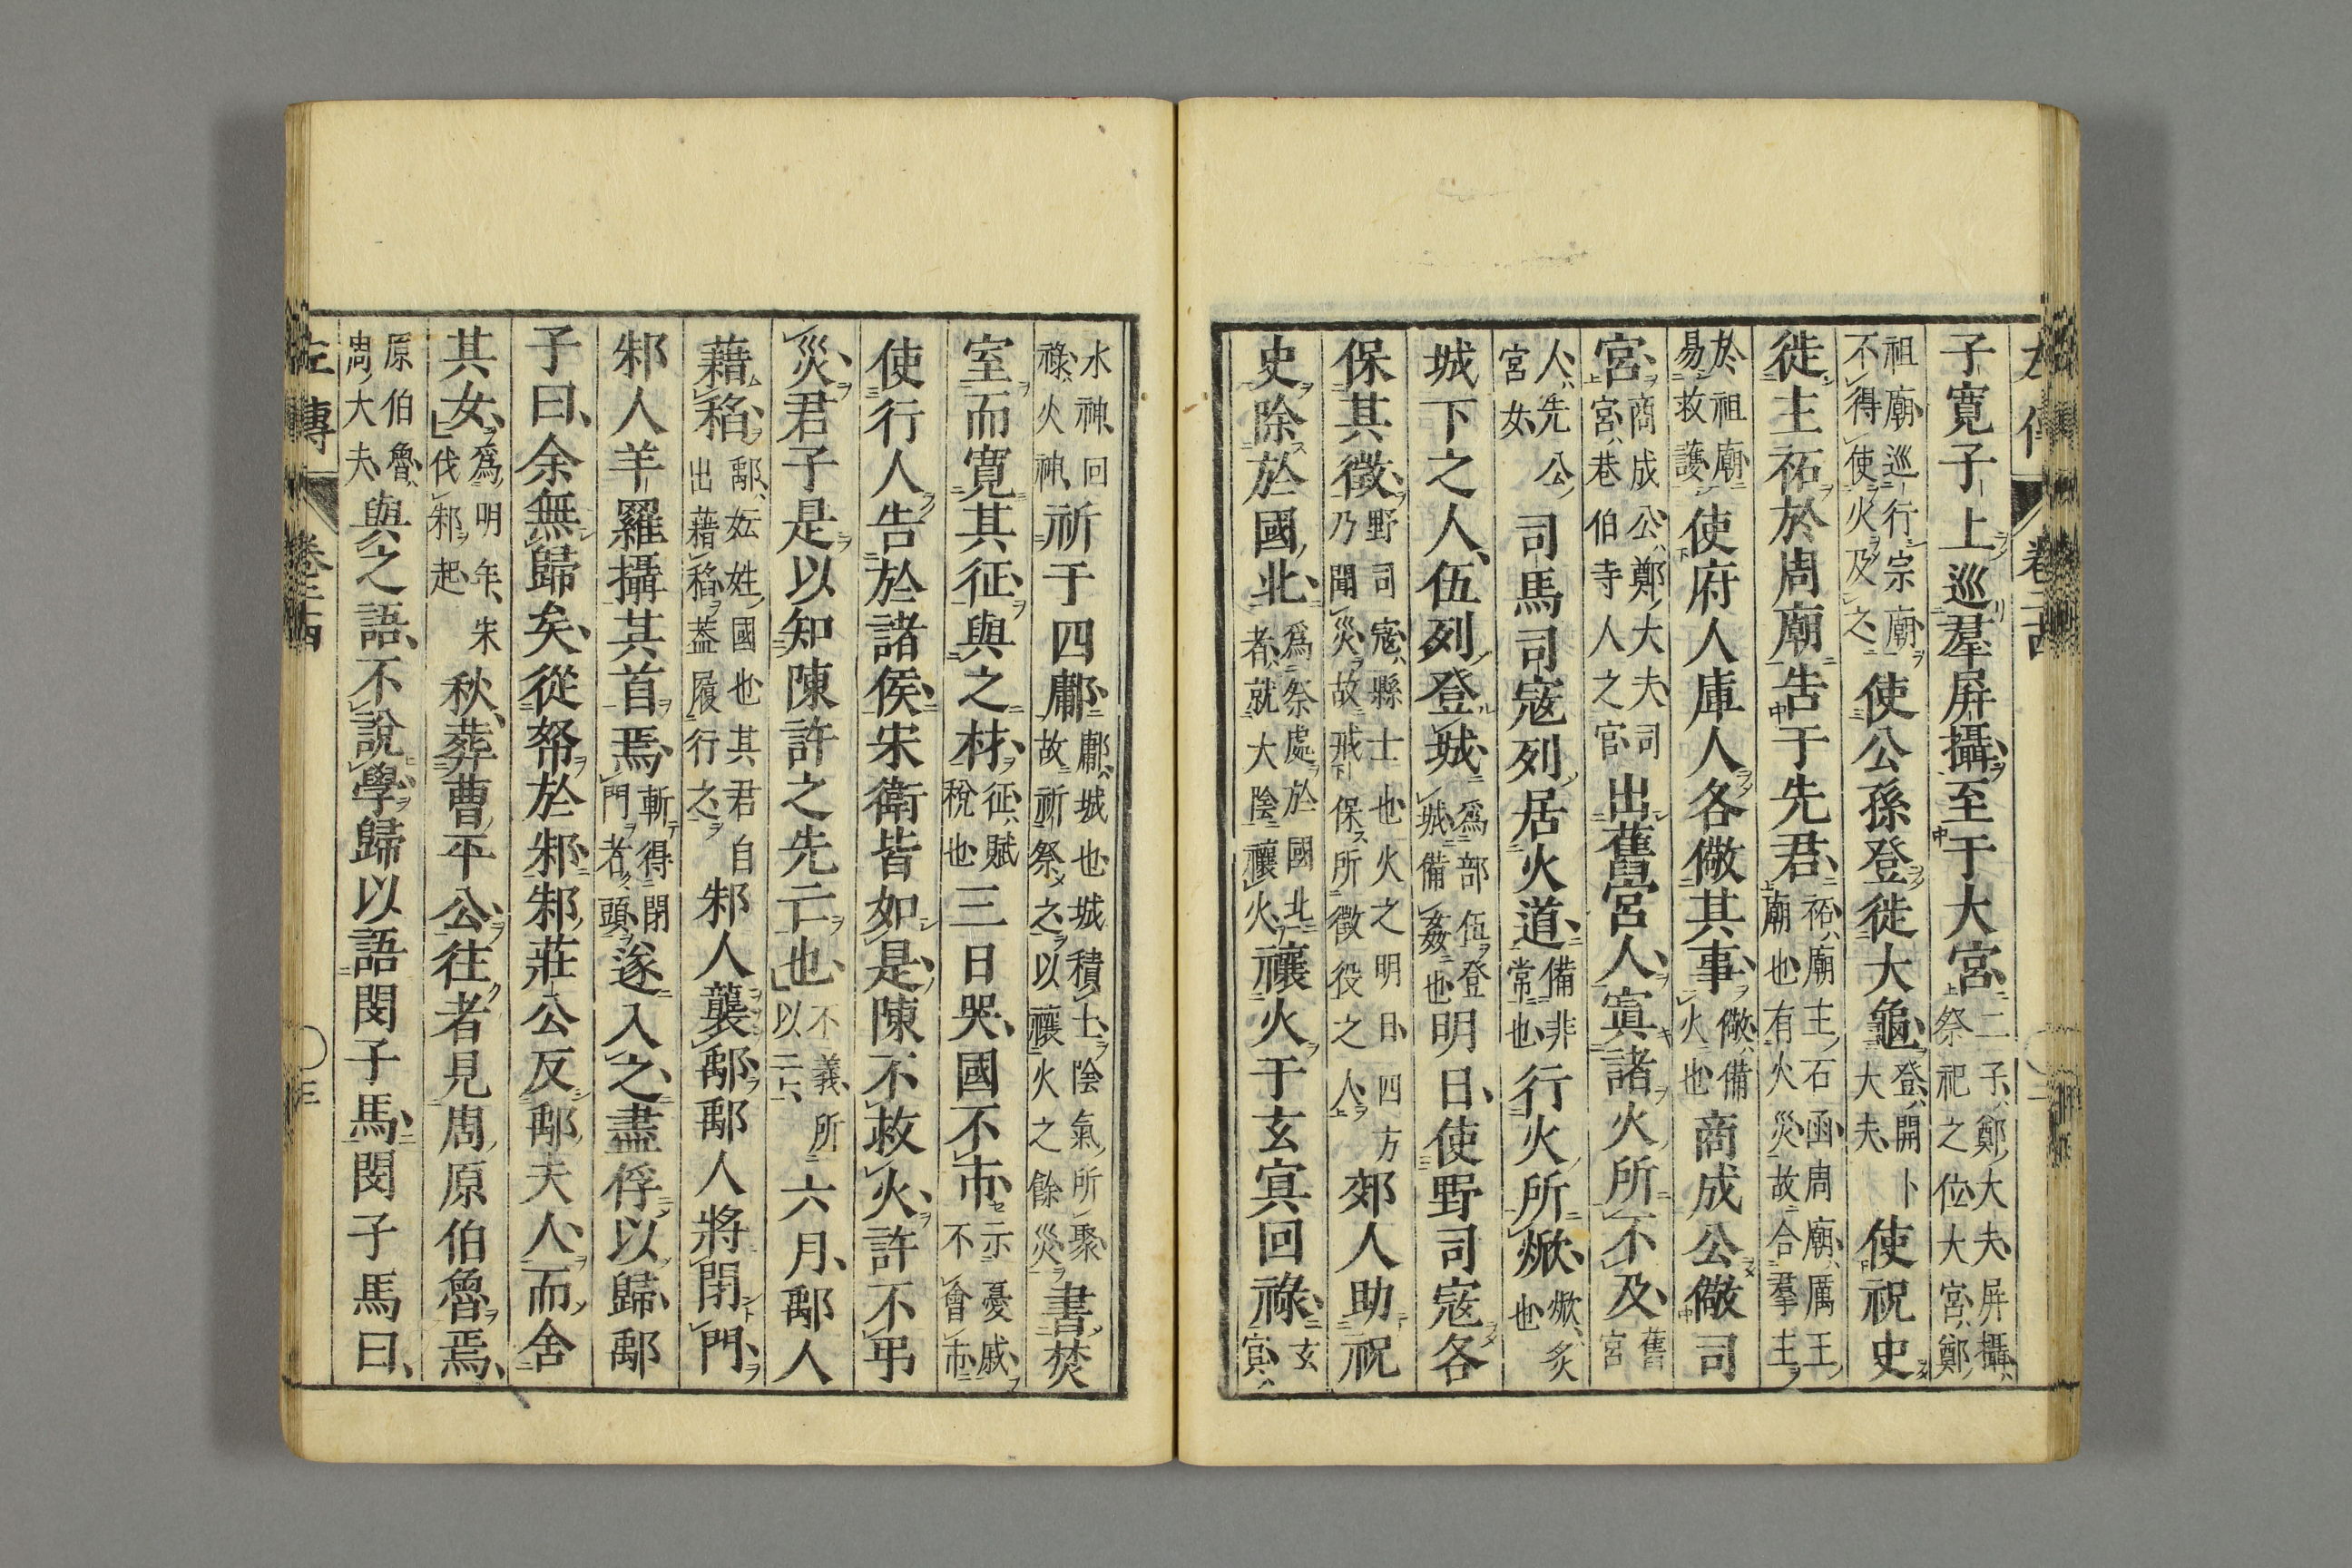 左傳 卷二十四
子寬子上巡羣屏攝至于大宮二子鄭大夫屏攝祭祀之位大宮鄭
祖廟巡行宗廟不得使火及之使公孫登徙大龜登開卜大夫使祝史
徙主祏於周廟告于先君祏廟主石函周廟厲王廟也有火災故合羣主
於祖廟易救護使府人庫人各儆其事儆備火也商成公儆司
宮商成公鄭大夫司宮巷伯寺人之官出舊宮人寘諸火所不及舊宮
人先公宮女司馬司寇列居火道備非常也行火所焮焮炙也
城下之人伍列登城爲部伍登城備姦也明日使野司寇各
保其徵野司寇縣士也火之明日四方乃聞災故戒保所徵役之人郊人助祝
史除於國北爲祭處於國北者就大陰禳火禳火于玄冥回祿玄冥
水神回祿火神祈于四鄘鄘城也城積土陰氣所聚故祈祭之以禳火之餘災書焚
室而寬其征與之材征賦稅也三日哭國不市示憂戚不會市
使行人告於諸侯宋衛皆如是陳不救火許不弔
災君子是以知陳許之先亡也不義所以亡六月鄅人
藉稻鄅妘姓國也其君自出藉稻蓋履行之邾人襲鄅鄅人將閉門
邾人羊羅攝其首焉斬得閉門者頭遂入之盡俘以歸鄅
子曰余無歸矣從帑於邾邾莊公反鄅夫人而舍
其女爲明年宋伐邾起秋葬曹平公往者見周原伯魯焉
原伯魯周大夫與之語不說學歸以語閔子馬閔子馬曰
左傳 卷二十四 三